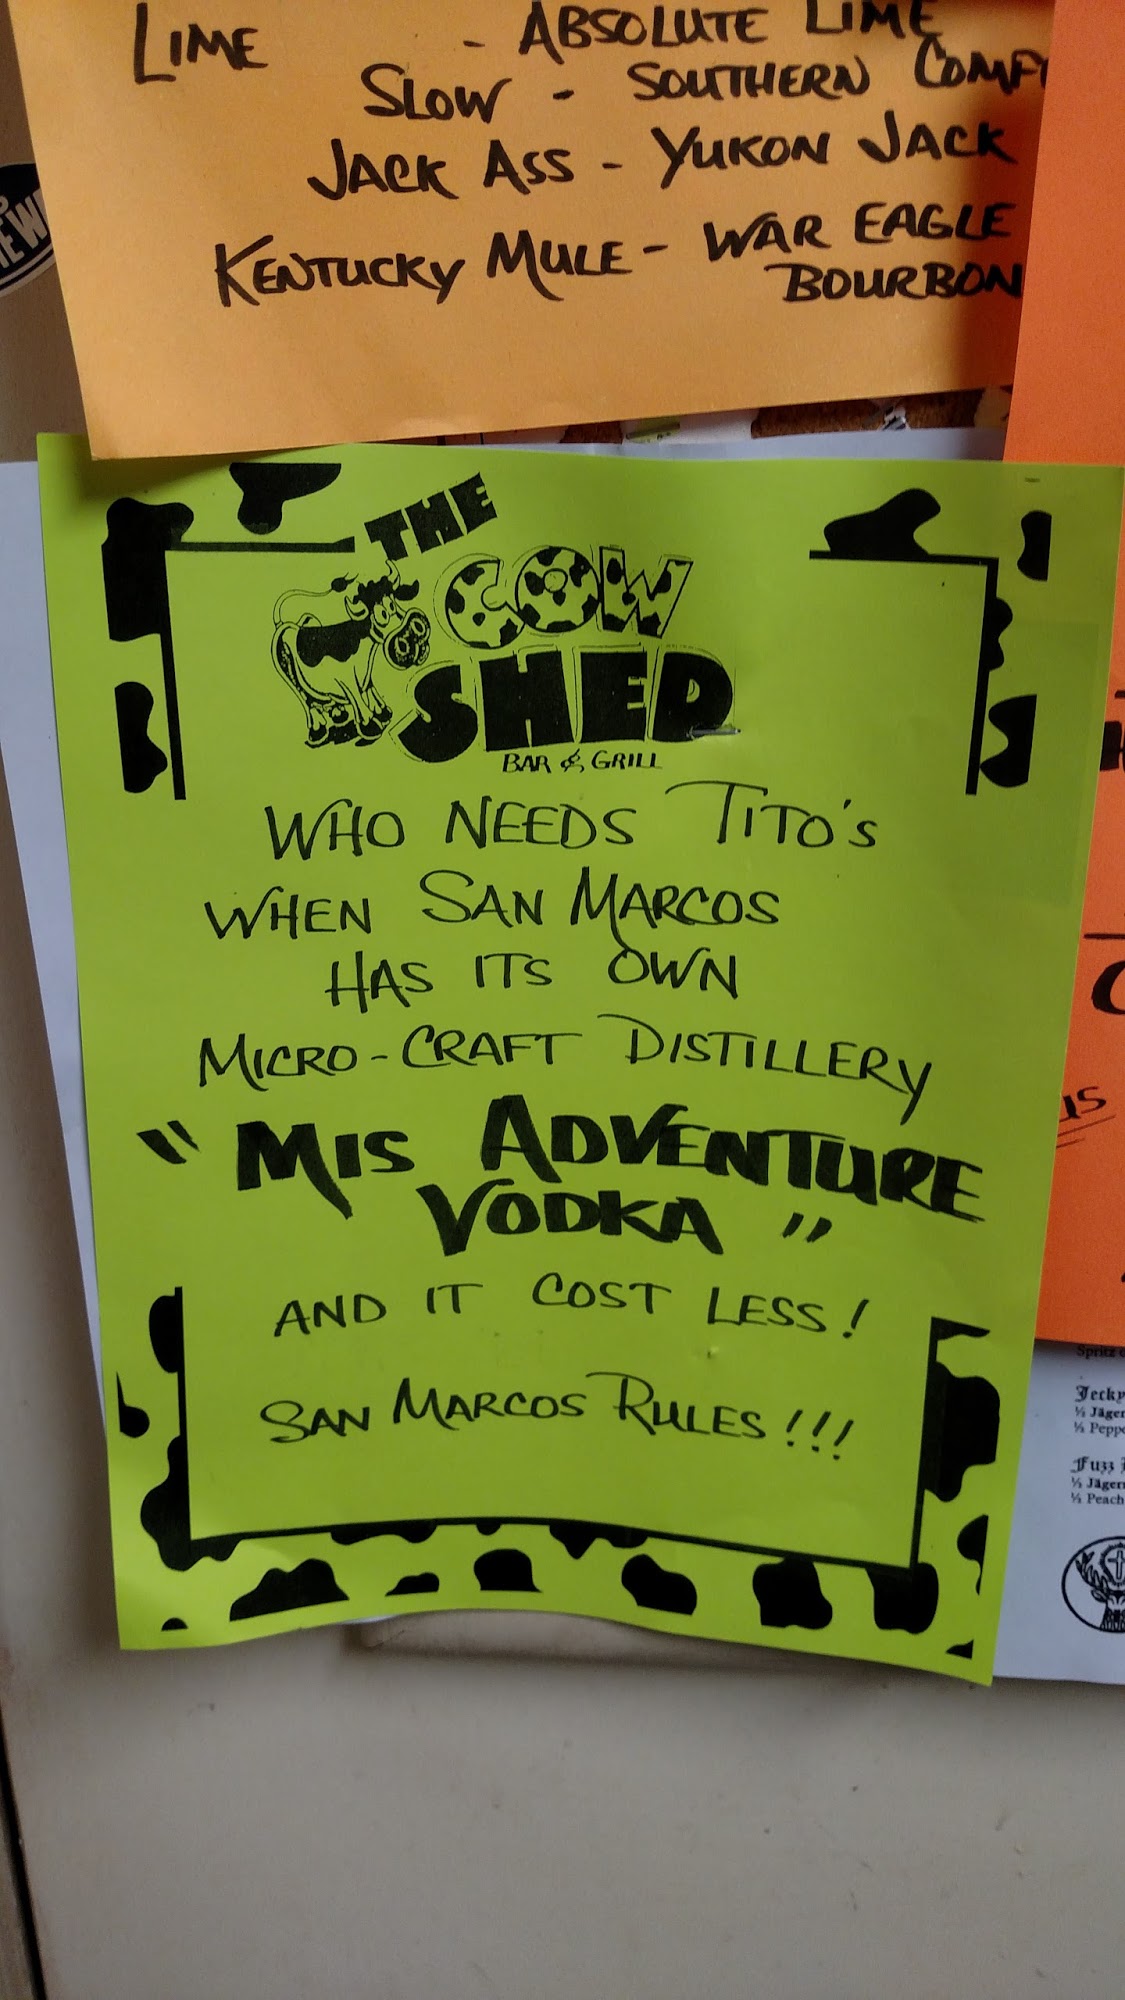 LIME - ABSOLUTE LIME
SLOW - SOUTHERN
JACK ASS - YUKON JACK
KENTUCKY MULE - WAR EAGLE
BOURBON
THE
COW
SHED
BAR & GRILL
WHO NEEDS TITO'S
WHEN SAN MARCOS
HAS ITS OWN
MICRO-CRAFT DISTILLERY
"MIS ADVENTURE
VODKA"
AND IT COST LESS!
SAN MARCOS RULES!!!
Spritz
½ Jäger
½
Fuzz
½ Jäger
½ Peach